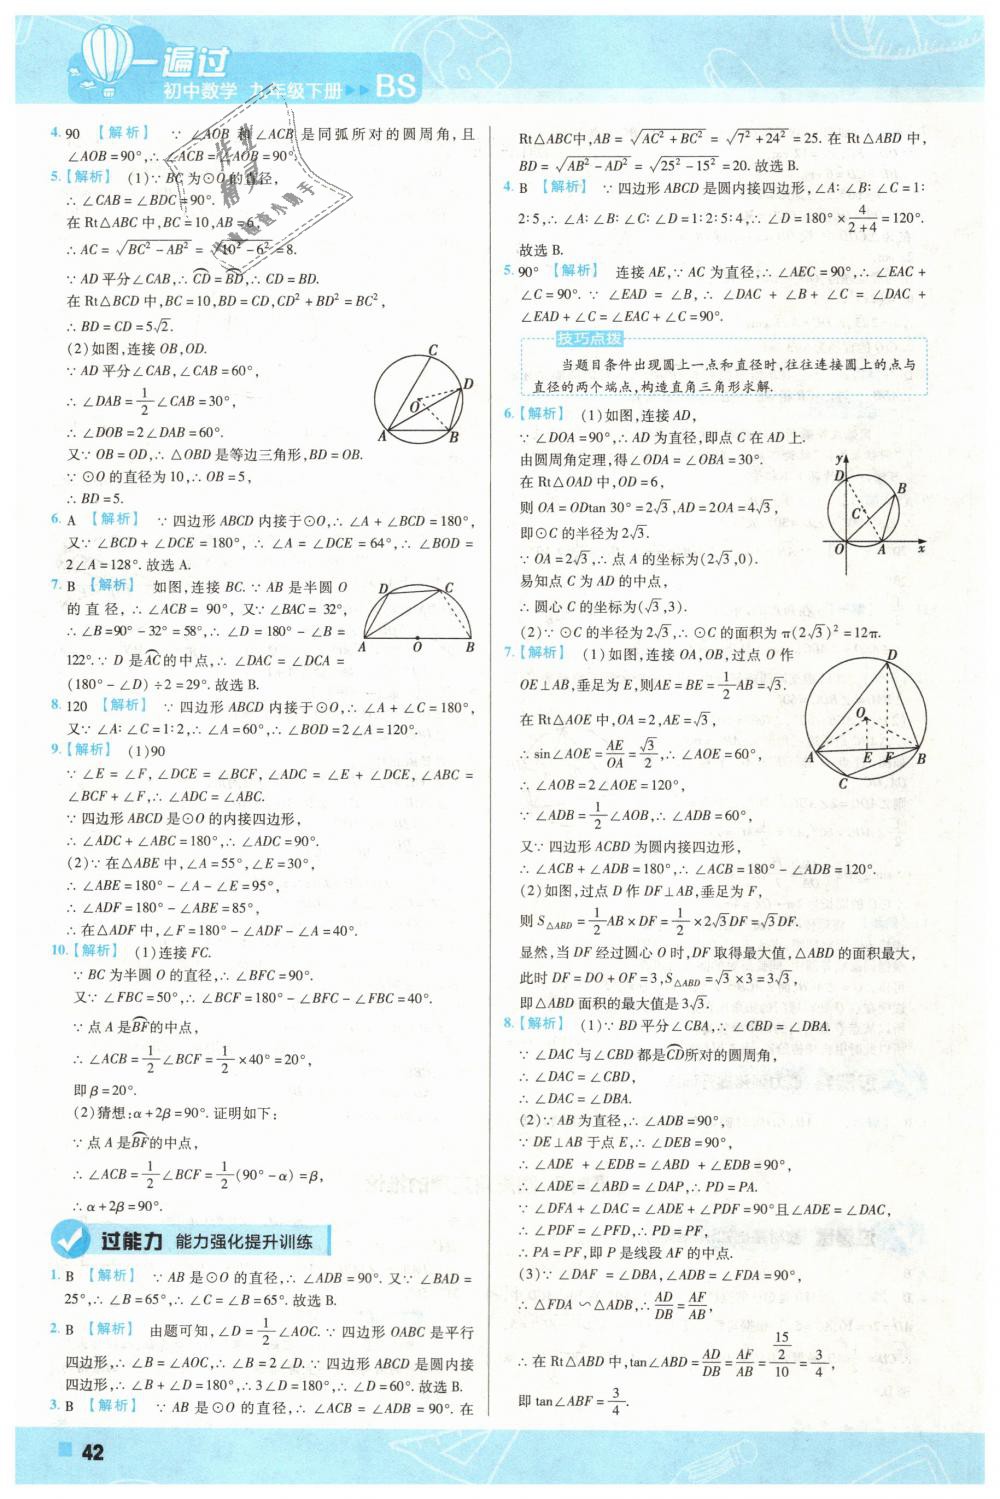 一遍过
初中数学 九年级下册 ▶▶ BS
4. 90 【解析】 ∵ ∠AOB 和 ∠ACB 是同弧所对的圆周角,且
∠AOB=90°,∴ ∠ACB=∠AOB=90°.
5.【解析】 (1)∵ BC 为⊙O 的直径,
∴ ∠CAB=∠BDC=90°.
在 Rt△ABC 中,BC=10,AB=6,
∴ AC=√(BC²-AB²)=√(10²-6²)=8.
∵ AD 平分∠CAB,∴ C͡D=B͡D,∴ CD=BD.
在 Rt△BCD 中,BC=10,BD=CD,CD²+BD²=BC²,
∴ BD=CD=5√2.
(2)如图,连接 OB,OD.
∵ AD 平分∠CAB,∠CAB=60°,
∴ ∠DAB=1/2∠CAB=30°,
∴ ∠DOB=2∠DAB=60°.
又∵ OB=OD,∴ △OBD 是等边三角形,BD=OB.
∵ ⊙O 的直径为 10,∴ OB=5,
∴ BD=5.
C
D
O
A
B
6. A 【解析】 ∵ 四边形 ABCD 内接于⊙O,∴ ∠A+∠BCD=180°,
又∵ ∠BCD+∠DCE=180°,∴ ∠A=∠DCE=64°,∴ ∠BOD=
2∠A=128°. 故选 A.
7. B 【解析】 如图,连接 BC. ∵ AB 是半圆 O
的直径,∴ ∠ACB=90°,又∵ ∠BAC=32°,
∴ ∠B=90°-32°=58°,∴ ∠D=180°-∠B=
122°.∵ D 是A͡C的中点,∴ ∠DAC=∠DCA=
(180°-∠D)÷2=29°. 故选 B.
D
C
A
O
B
8. 120 【解析】 ∵ 四边形 ABCD 内接于⊙O,∴ ∠A+∠C=180°,
又∵ ∠A:∠C=1:2,∴ ∠A=60°,∴ ∠BOD=2∠A=120°.
9.【解析】 (1)90
∵ ∠E=∠F,∠DCE=∠BCF,∠ADC=∠E+∠DCE,∠ABC=
∠BCF+∠F,∴ ∠ADC=∠ABC.
∵ 四边形 ABCD 是⊙O 的内接四边形,
∴ ∠ADC+∠ABC=180°,∴ ∠ADC=90°.
(2)∵ 在△ABE 中,∠A=55°,∠E=30°,
∴ ∠ABE=180°-∠A-∠E=95°,
∴ ∠ADF=180°-∠ABE=85°,
∴ 在△ADF 中,∠F=180°-∠ADF-∠A=40°.
10.【解析】 (1)连接 FC.
∵ BC 为半圆 O 的直径,∴ ∠BFC=90°.
又∵ ∠FBC=50°,∴ ∠BCF=180°-∠BFC-∠FBC=40°.
∵ 点 A 是B͡F的中点,
∴ ∠ACB=1/2∠BCF=1/2×40°=20°,
即 β=20°.
(2)猜想:α+2β=90°. 证明如下:
∵ 点 A 是B͡F的中点,
∴ ∠ACB=1/2∠BCF=1/2(90°-α)=β,
∴ α+2β=90°.
过能力 能力强化提升训练
1. B 【解析】 ∵ AB 是⊙O 的直径,∴ ∠ADB=90°. 又∵ ∠BAD=
25°,∴ ∠B=65°,∴ ∠C=∠B=65°. 故选 B.
2. B 【解析】 由题可知,∠D=1/2∠AOC. ∵ 四边形 OABC 是平行
四边形,∴ ∠B=∠AOC,∴ ∠B=2∠D. ∵ 四边形 ABCD 是圆内接
四边形,∴ ∠B+∠D=180°,∴ 3∠D=180°,∴ ∠D=60°. 故选 B.
3. B 【解析】 ∵ AB 是⊙O 的直径,∴ ∠ACB=∠ADB=90°. 在
Rt△ABC中,AB=√(AC²+BC²)=√(7²+24²)=25. 在 Rt△ABD 中,
BD=√(AB²-AD²)=√(25²-15²)=20. 故选 B.
4. B 【解析】 ∵ 四边形 ABCD 是圆内接四边形,∠A:∠B:∠C=1:
2:5,∴ ∠A:∠B:∠C:∠D=1:2:5:4,∴ ∠D=180°×4/(2+4)=120°.
故选 B.
5. 90° 【解析】 连接 AE,∵ AC 为直径,∴ ∠AEC=90°,∴ ∠EAC+
∠C=90°. ∵ ∠EAD=∠B,∴ ∠DAC+∠B+∠C=∠DAC+
∠EAD+∠C=∠EAC+∠C=90°.
技巧点拨
当题目条件出现圆上一点和直径时,往往连接圆上的点与
直径的两个端点,构造直角三角形求解.
6.【解析】 (1)如图,连接 AD,
∵ ∠DOA=90°,∴ AD 为直径,即点 C 在 AD 上.
由圆周角定理,得∠ODA=∠OBA=30°.
在 Rt△OAD 中,OD=6,
则 OA=ODtan 30°=2√3,AD=2OA=4√3,
即⊙C 的半径为 2√3.
∵ OA=2√3,∴ 点 A 的坐标为(2√3,0).
易知点 C 为 AD 的中点,
∴ 圆心 C 的坐标为(√3,3).
(2)∵ ⊙C 的半径为 2√3,∴ ⊙C 的面积为 π(2√3)²=12π.
y
D
B
C
O
A
x
7.【解析】 (1)如图,连接 OA,OB,过点 O 作
OE⊥AB,垂足为 E,则AE=BE=1/2AB=√3.
在 Rt△AOE 中,OA=2,AE=√3,
∴ sin∠AOE=AE/OA=√3/2,∴ ∠AOE=60°,
∴ ∠AOB=2∠AOE=120°,
∵ ∠ADB=1/2∠AOB,∴ ∠ADB=60°,
又∵ 四边形 ACBD 为圆内接四边形,
∴ ∠ACB+∠ADB=180°,∴ ∠ACB=180°-∠ADB=120°.
(2)如图,过点 D 作 DF⊥AB,垂足为 F,
则 S△ABD=1/2AB×DF=1/2×2√3DF=√3DF.
显然,当 DF 经过圆心 O 时,DF 取得最大值,△ABD 的面积最大,
此时 DF=DO+OF=3,S△ABD=√3×3=3√3,
即△ABD 面积的最大值是 3√3.
D
O
A
E
F
B
C
8.【解析】 (1)∵ BD 平分∠CBA,∴ ∠CBD=∠DBA.
∵ ∠DAC 与∠CBD 都是C͡D所对的圆周角,
∴ ∠DAC=∠CBD,
∴ ∠DAC=∠DBA.
(2)∵ AB 为直径,∴ ∠ADB=90°,
∵ DE⊥AB 于点 E,∴ ∠DEB=90°,
∴ ∠ADE+∠EDB=∠ABD+∠EDB=90°,
∴ ∠ADE=∠ABD=∠DAP,∴ PD=PA.
∵ ∠DFA+∠DAC=∠ADE+∠PDF=90°且∠ADE=∠DAC,
∴ ∠PDF=∠PFD,∴ PD=PF,
∴ PA=PF,即 P 是线段 AF 的中点.
(3)∵ ∠DAF=∠DBA,∠ADB=∠FDA=90°,
∴ △FDA∽△ADB,∴ AD/DB=AF/AB,
∴ 在 Rt△ABD 中,tan∠ABD=AD/DB=AF/AB=(15/2)/10=3/4,
即 tan∠ABF=3/4.
42